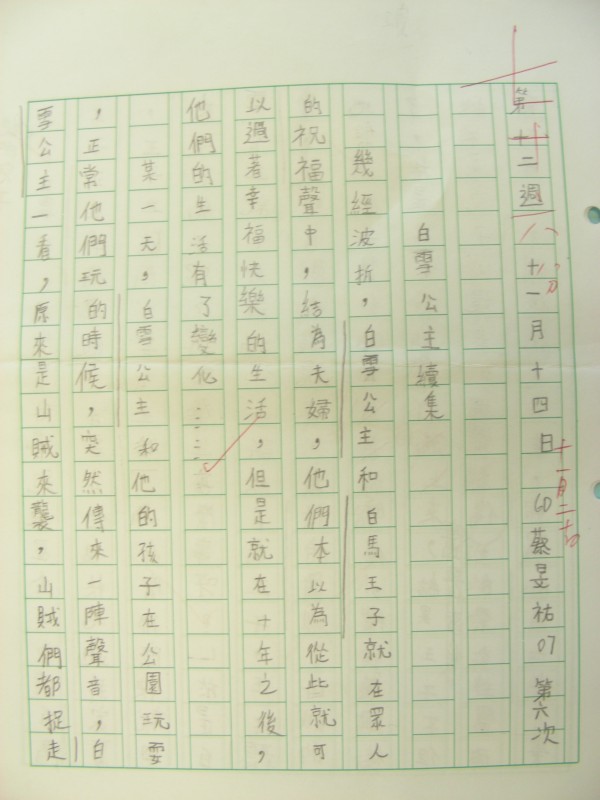 第十二週 十一月十四日 6D 蔡旻祐 07 第六次
白雪公主續集
幾經波折，白雪公主和白馬王子就在眾人
的祝福聲中，結為夫婦，他們本以為從此就可
以過著幸福快樂的生活，但是就在十年之後，
他們的生活有了變化……
某一天，白雪公主和他的孩子在公園玩耍
，正常他們玩的時候，突然傳來一陣聲音，白
雪公主一看，原來是山賊來襲，山賊們都捉走